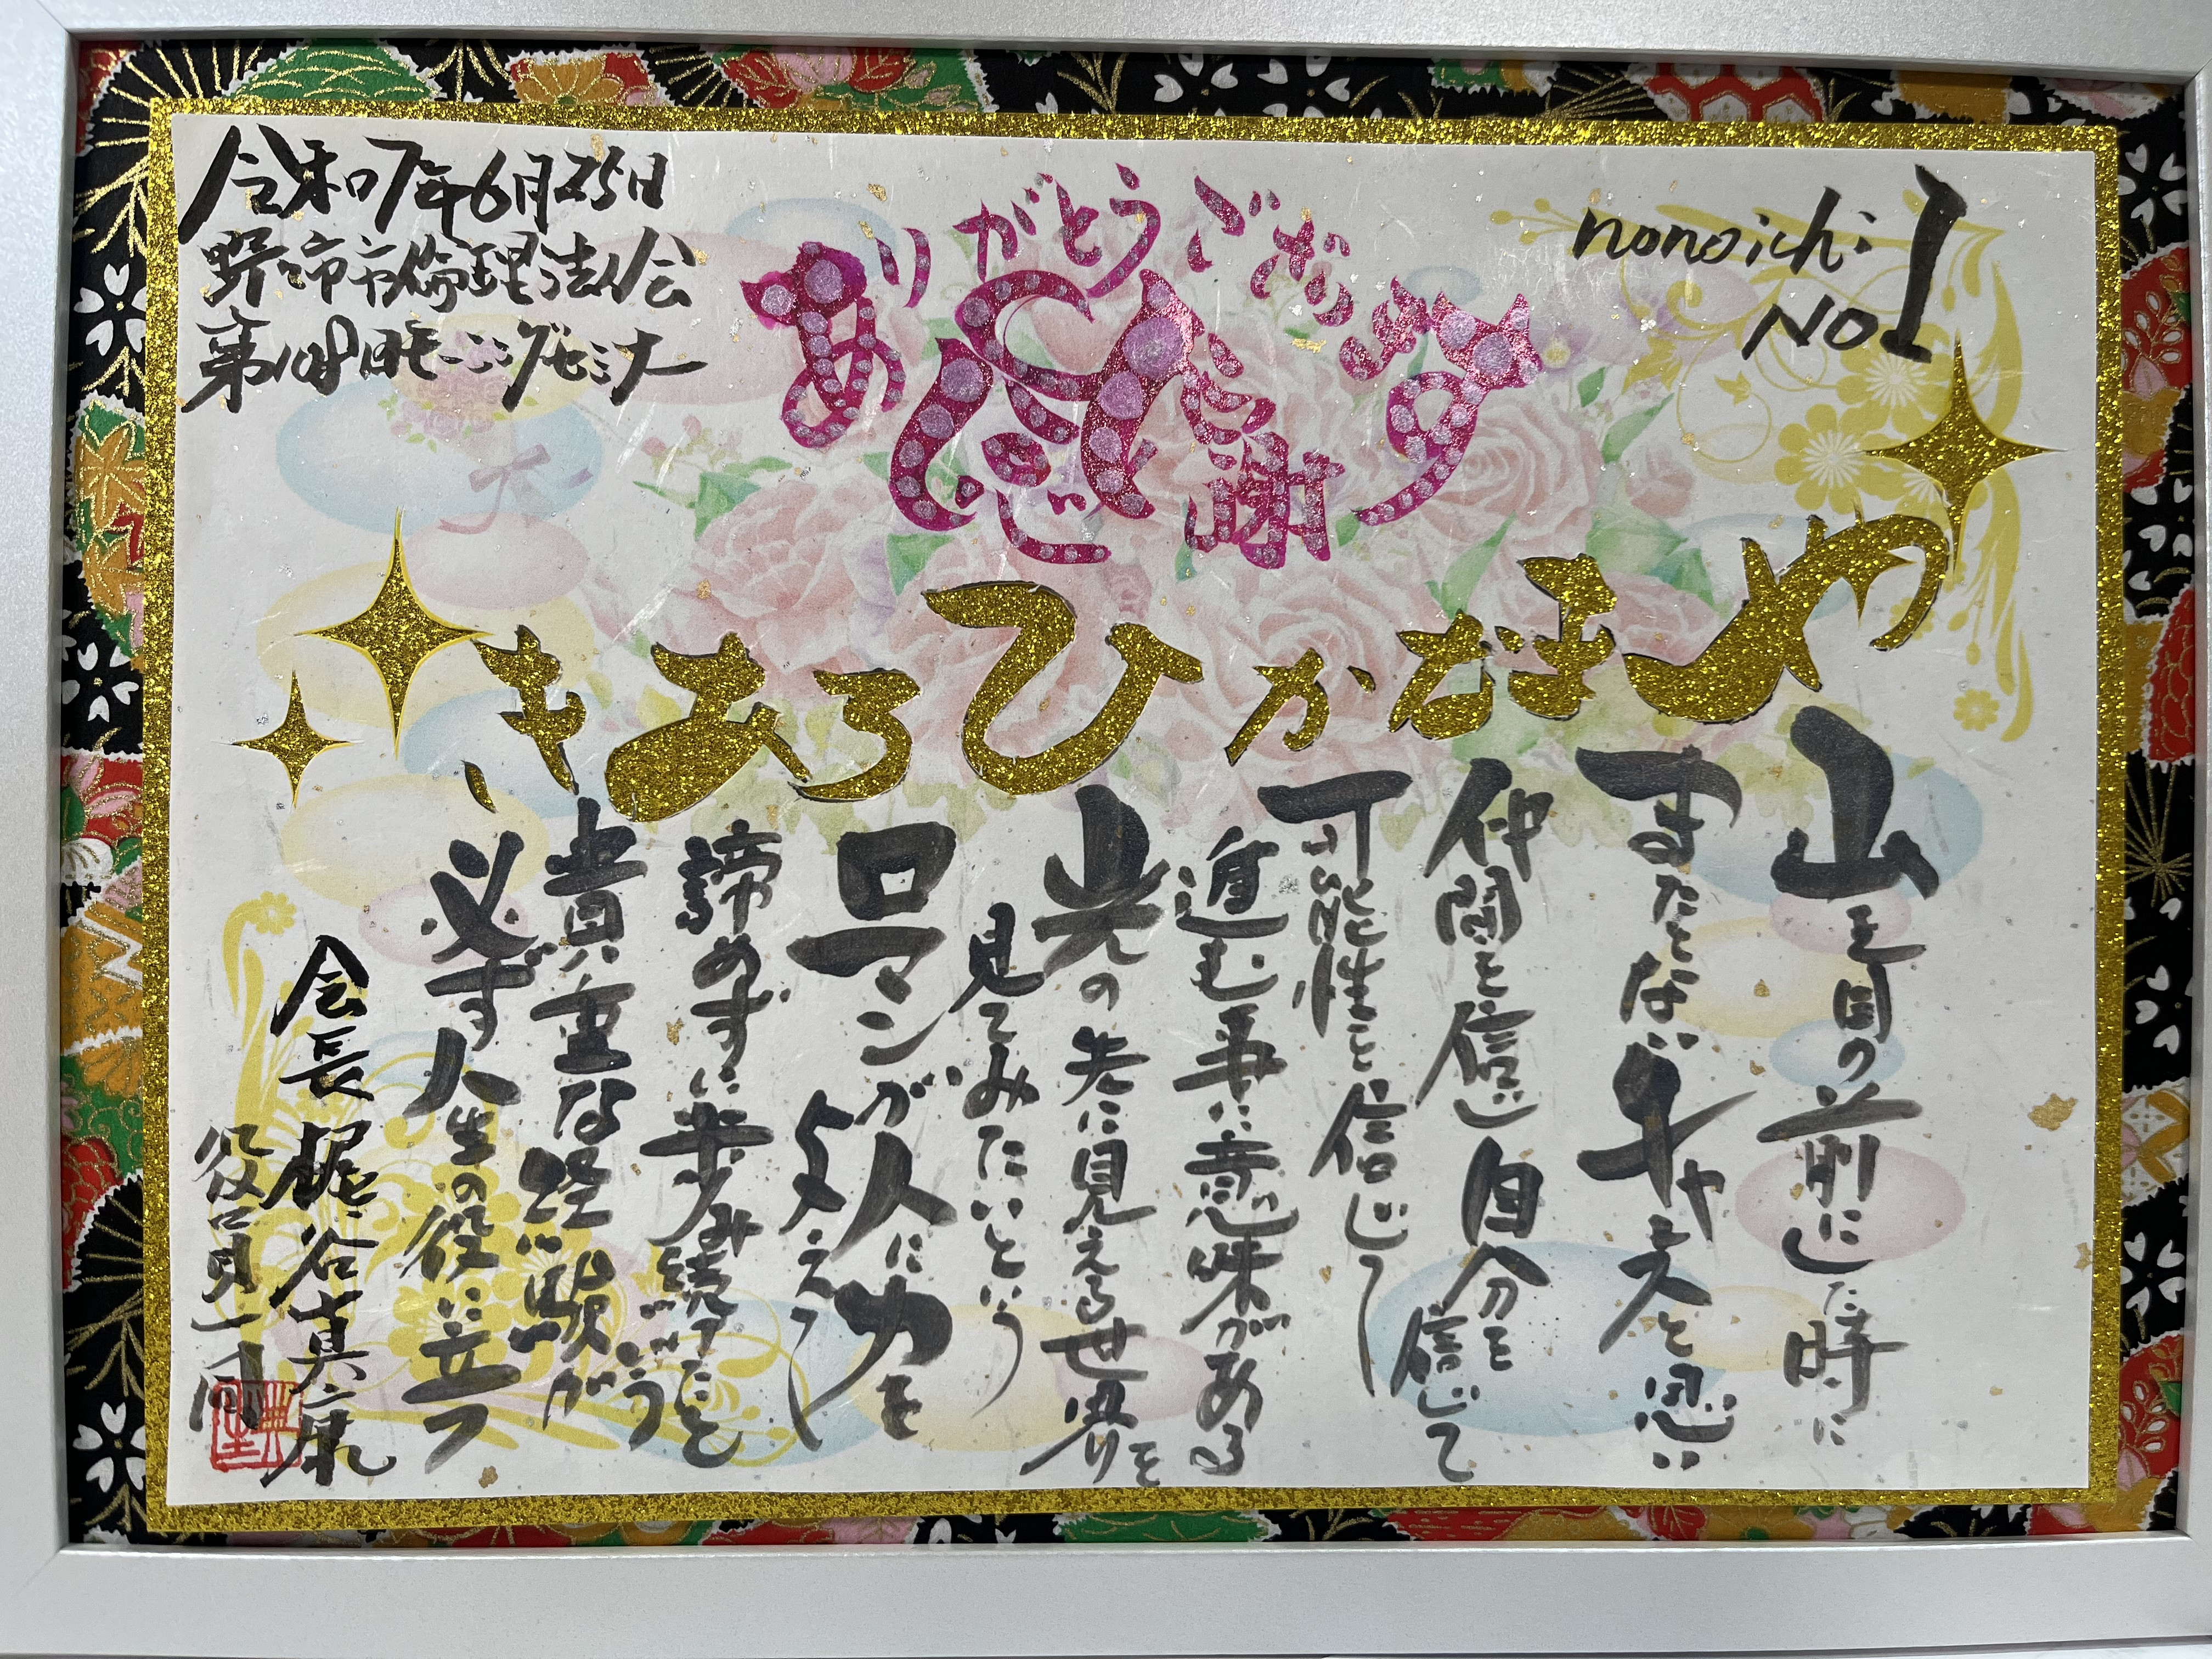 令和7年6月25日
野々市市倫理法人会
第108回モーニングセミナー
ありがとうございます
感謝
nonoichi
NO1
やまなかひろあき
山を目の前にした時に
またとないチャンスと思い
仲間を信じ自分を信じて
可能性を信じて
進む事に意味がある
光の先に見える世界を
見てみたいという
ロマンが人に力を
与えて
諦めずに歩み続けたという
貴重な経験が
必ず人生の役に立つ
会長 梶谷真康
役員一同